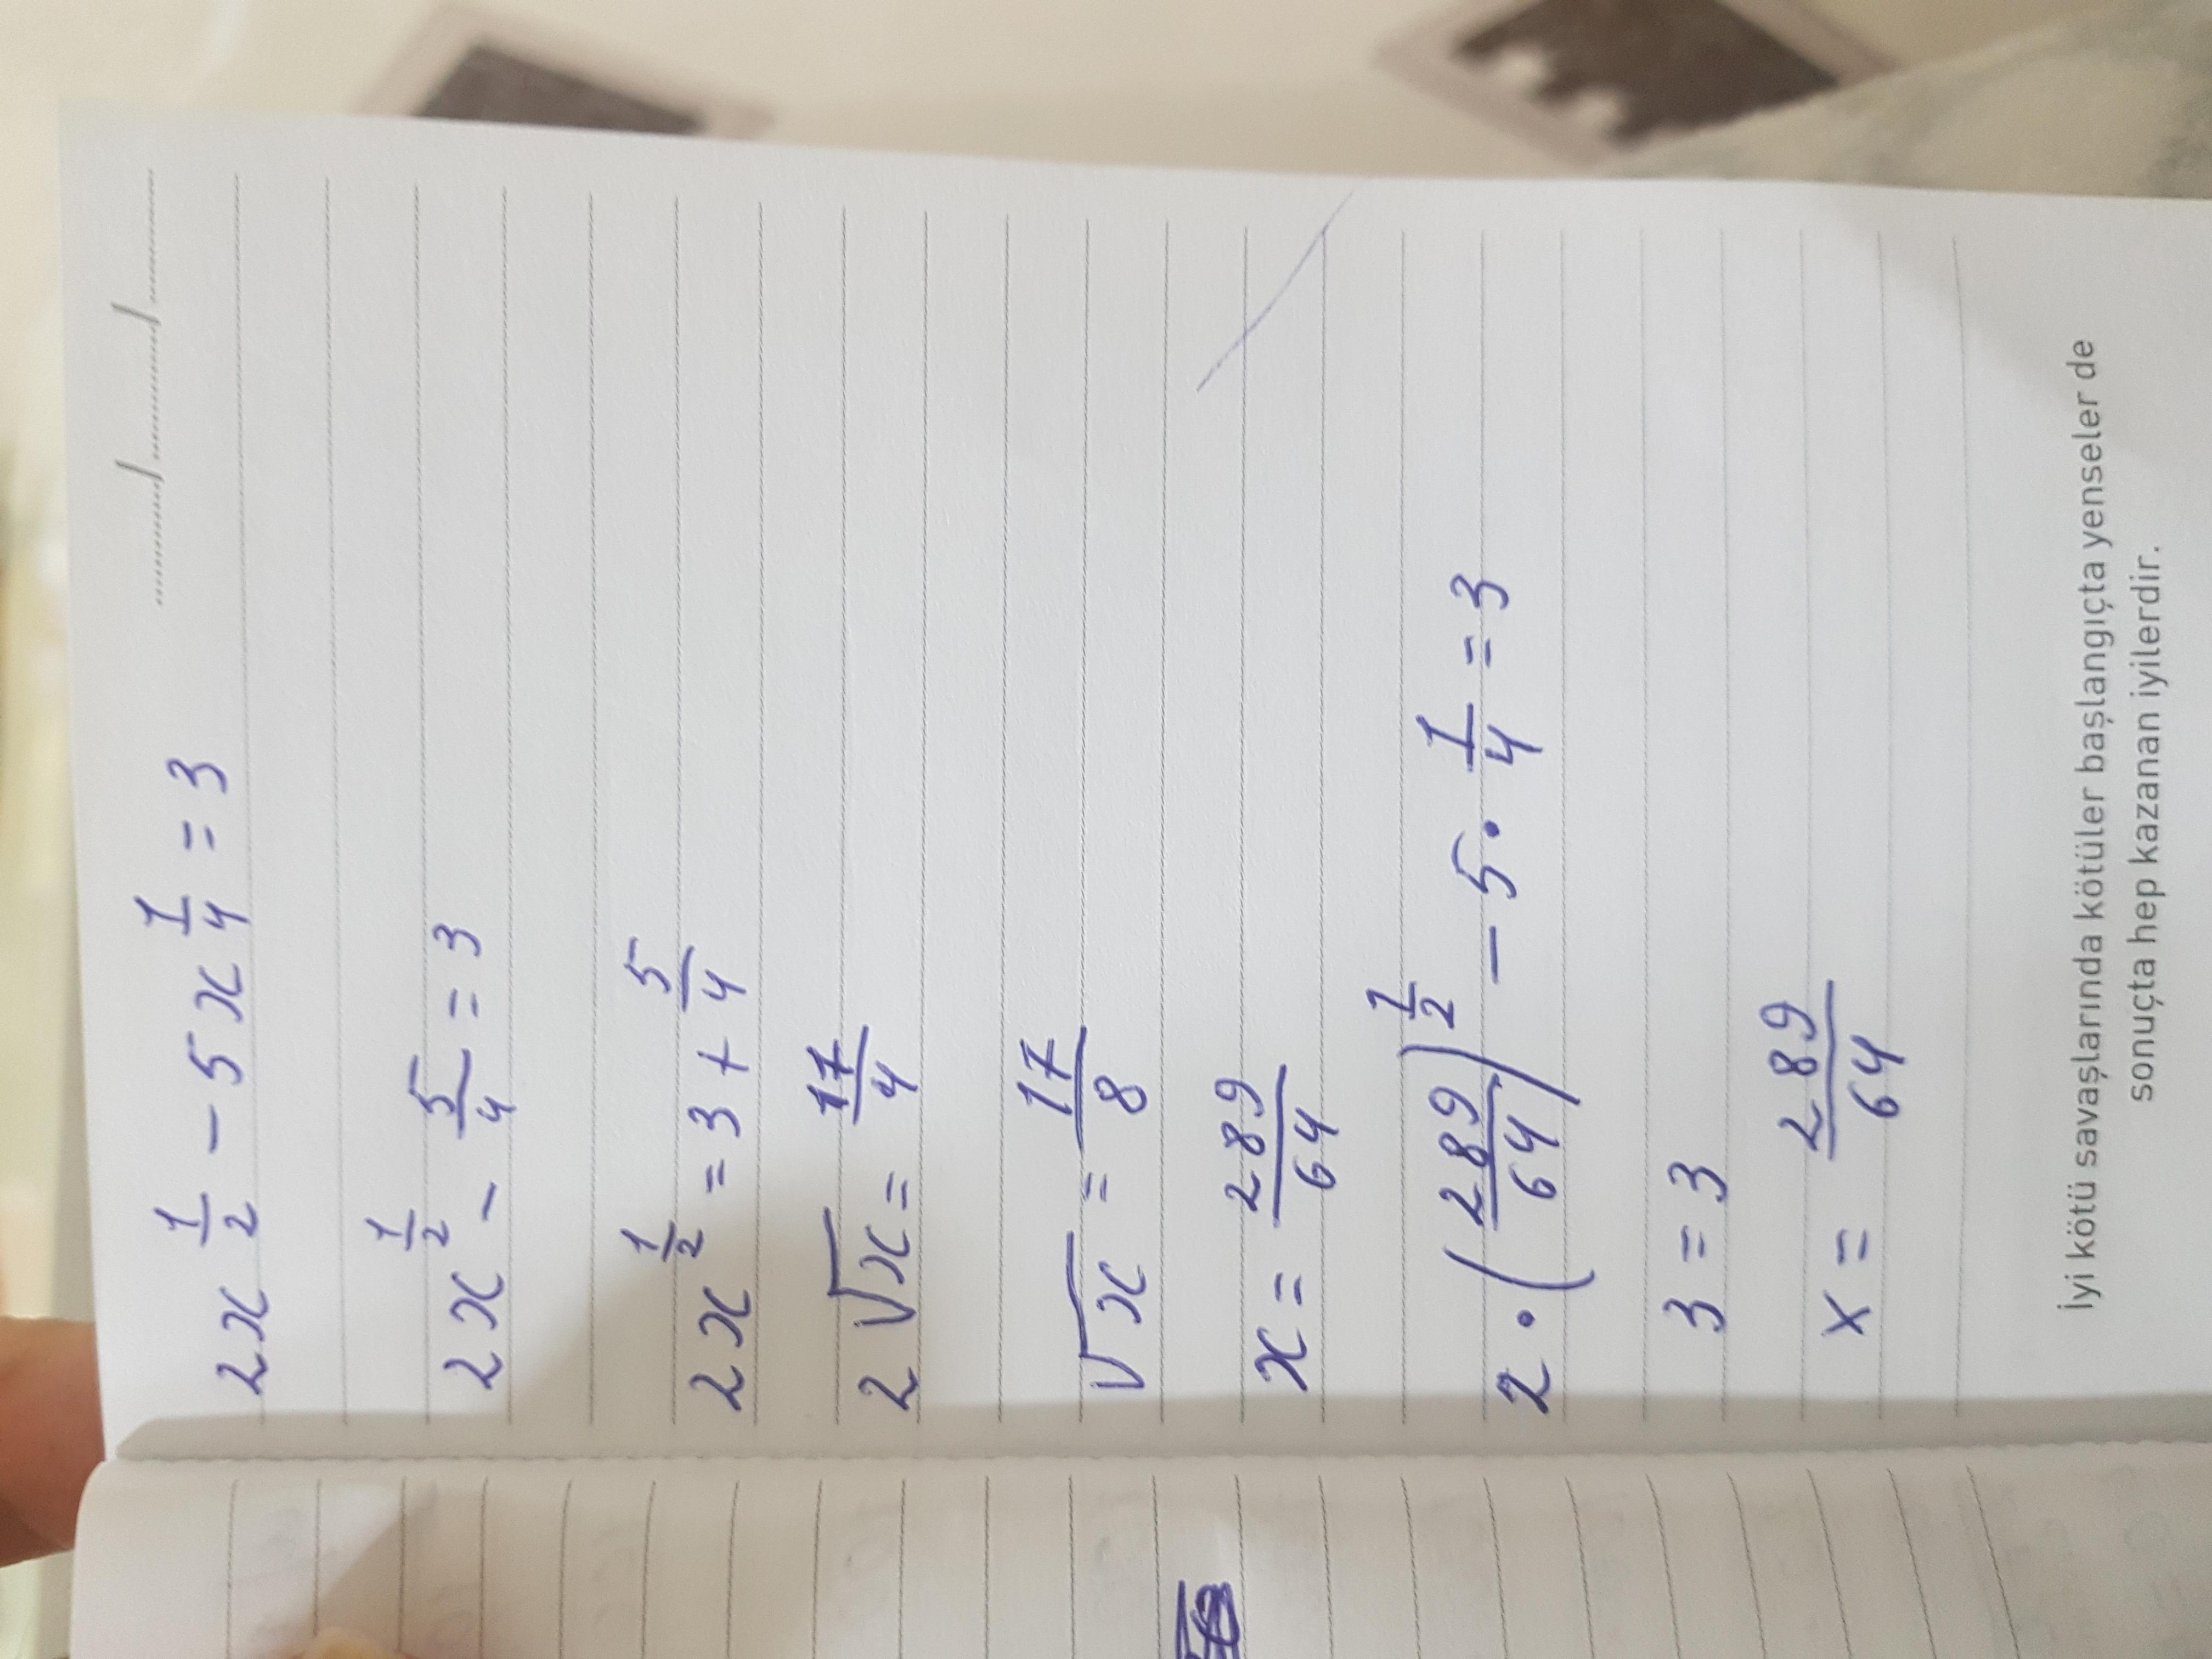 ....../....../......
2x^(1/2) - 5x 1/4 = 3
2x^(1/2) - 5/4 = 3
2x^(1/2) = 3 + 5/4
2√x = 17/4
√x = 17/8
x = 289/64
2 · (289/64)^(1/2) - 5 · 1/4 = 3
3 = 3
x = 289/64
İyi kötü savaşlarında kötüler başlangıçta yenseler de
sonuçta hep kazanan iyilerdir.